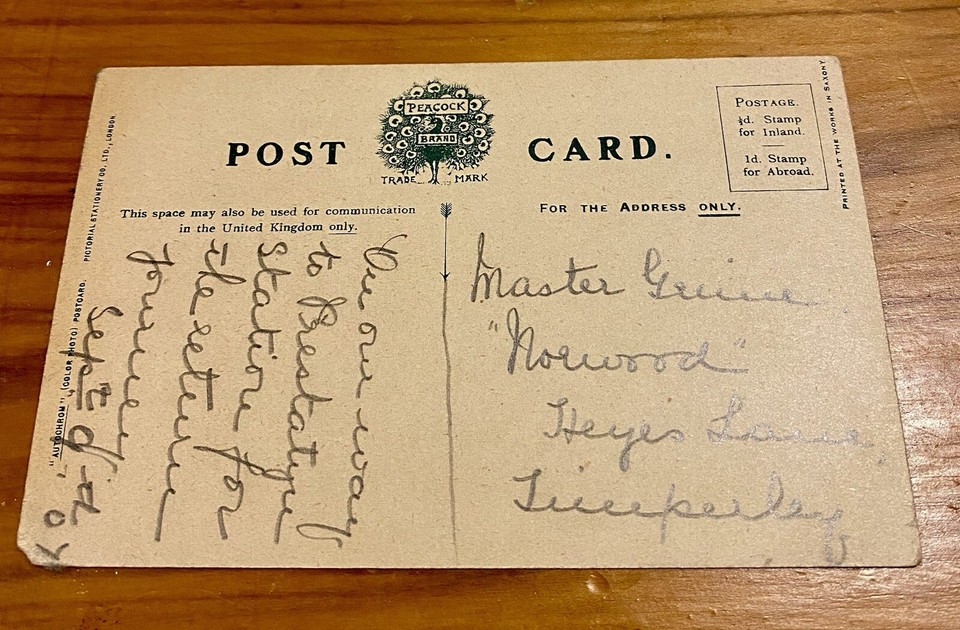 POST CARD.
PEACOCK
BRAND
TRADE MARK
POSTAGE.
½d. Stamp
for Inland.
1d. Stamp
for Abroad.
This space may also be used for communication
in the United Kingdom only.
FOR THE ADDRESS ONLY.
On our way
to Prestatyn
Station for
the return
Journey
Sept 9th 07
Master
"Norwood"
Heyes Lane,
Timperley
"AUTOCHROM", (COLOR PHOTO) POSTCARD. PICTORIAL STATIONERY CO., LTD., LONDON.
PRINTED AT THE WORKS IN SAXONY